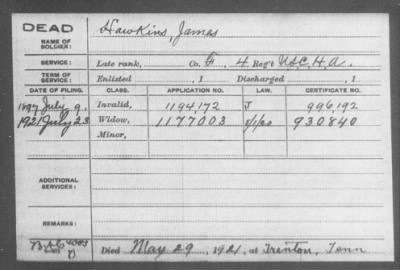 DEAD
NAME OF SOLDIER: Hawkins, James
SERVICE: Late rank, Co. F, 4 Reg't U.S.C.H.A.
TERM OF SERVICE: Enlisted , 1 Discharged , 1
DATE OF FILING. CLASS. APPLICATION NO. LAW. CERTIFICATE NO.
1897 July 9. Invalid, 1194,172 J 996192
1921 July 23 Widow, 1177003 5/1/20 930840
Minor,
ADDITIONAL SERVICES:
REMARKS:
Died May 29, 1921, at Trenton, Tenn